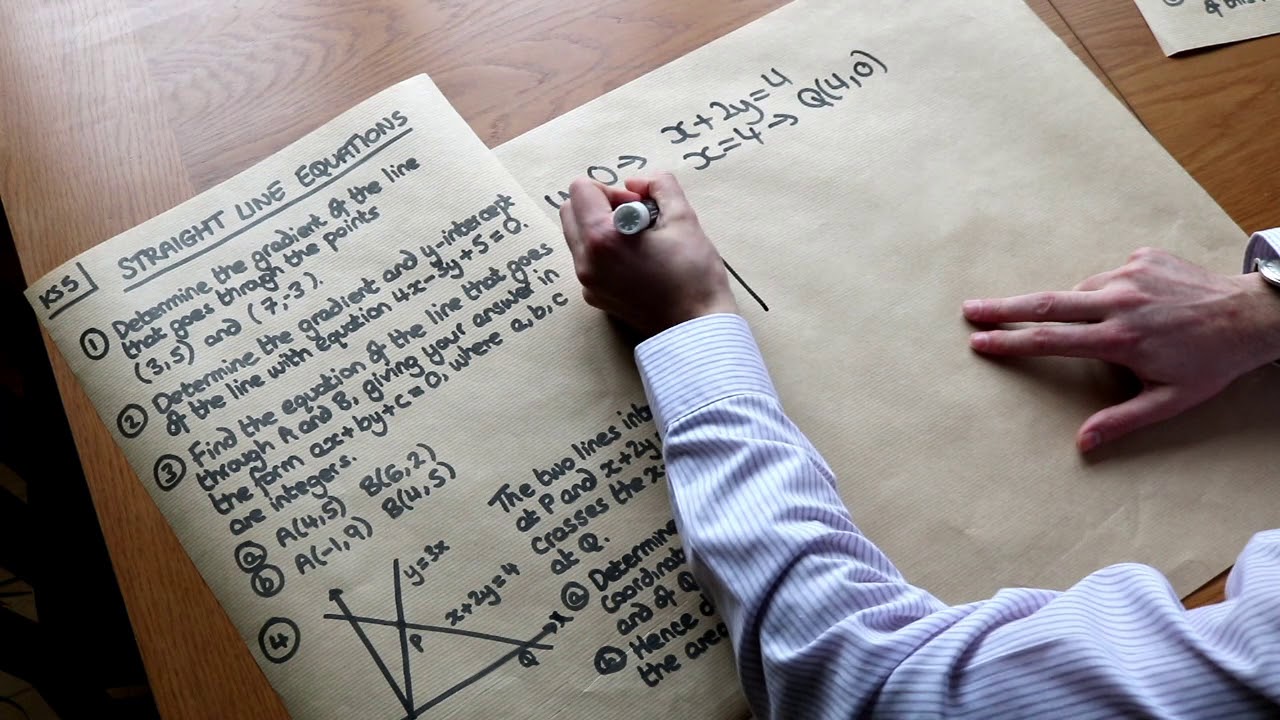 KS5
STRAIGHT LINE EQUATIONS
① Determine the gradient of the line
that goes through the points
(3,5) and (7,-3).
② Determine the gradient and y-intercept
of the line with equation 4x-3y+5=0.
③ Find the equation of the line that goes
through A and B, giving your answer in
the form ax+by+c=0, where a,b,c
are integers.
ⓐ A(4,5) B(6,2)
ⓑ A(-1,9) B(4,5)
④
y=3x
x+2y=4
P
x
Q
The two lines
at P and x+2y
crosses the
at Q.
ⓐ Determine
and of Q
ⓑ Hence
the area
0→ x+2y=4
x=4→ Q(4,0)